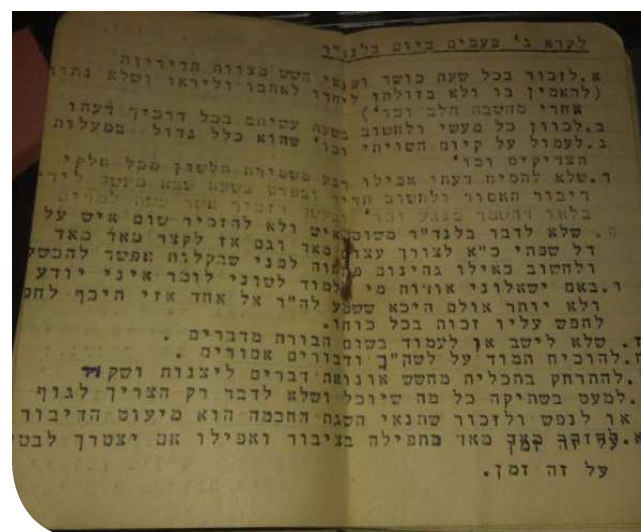 לקרא ג' פעמים ביום בלנד"ר
א.לזכור בכל שעה כושר ופנאי השש מצוות תדיריות
(להאמין בו ולא בזולתו ליחדו לאהבו וליראו ושלא נתור
אחרי מחשבת הלב וכו')
ב.לכוון כל מעשי ולחשוב בשעת עשיתם בכל דרכיך דעהו
ג.לעמול על קיום השויתי וכו' שהוא כלל גדול במעלות
הצדיקים וכו'
ד.שלא להסיח דעתי אפילו רגע משמירת הלשון מכל חלקי
דיבור האסור ולחשוב תדיר ובפרט בשעה שבא מעשה לידי
בלאו דהשמר בנגע וכו'
ה. שלא לדבר בלנד"ר משום איש ולא להזכיר שום איש על
דל שפתי כ"א לצורך עצום מאד וגם אז לקצר מאד מאד
ולחשוב כאילו גהינום פתוח לפני שבקלות אפשר להכשל
ו.באם ישאלוני אודות מי ללמוד לשוני לומר איני יודע
ולא יותר אולם היכא ששמע לה"ר אל אחד אזי תיכף לחפש
לחפש עליו זכות בכל כוחו.
ז. שלא לישב או לעמוד בשום חבורת מדברים .
ח.להוכיח תמוד על לשה"ר ודבורים אסורים .
.להתרחק בתכלית מחשש אונואת דברים ליצנות ושקר
.למעט בשתיקה כל מה שיוכל ושלא לדבר רק הצריך לגוף
או לנפש ולזכור שתנאי השגת החכמה הוא מיעוט הדיבור
א.להזהר מאד מאד מתפילה בציבור ואפילו אם יצטרך לבטל
על זה זמן.